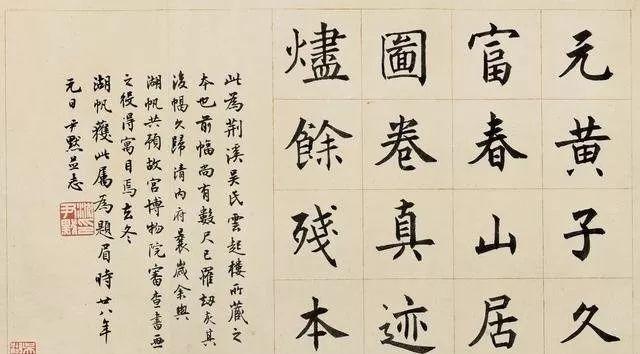 元黄子久
富春山居
圖卷真迹
燼餘殘本
此為荆溪吴氏雲起樓所藏之
本也前幅尚有數尺已罹劫灰其
後幅久歸清内府曩歲余與
湖帆共預故宫博物院審查書画
之役得寓目焉去冬
湖帆獲此属為題眉時廿八年
元日尹默并志